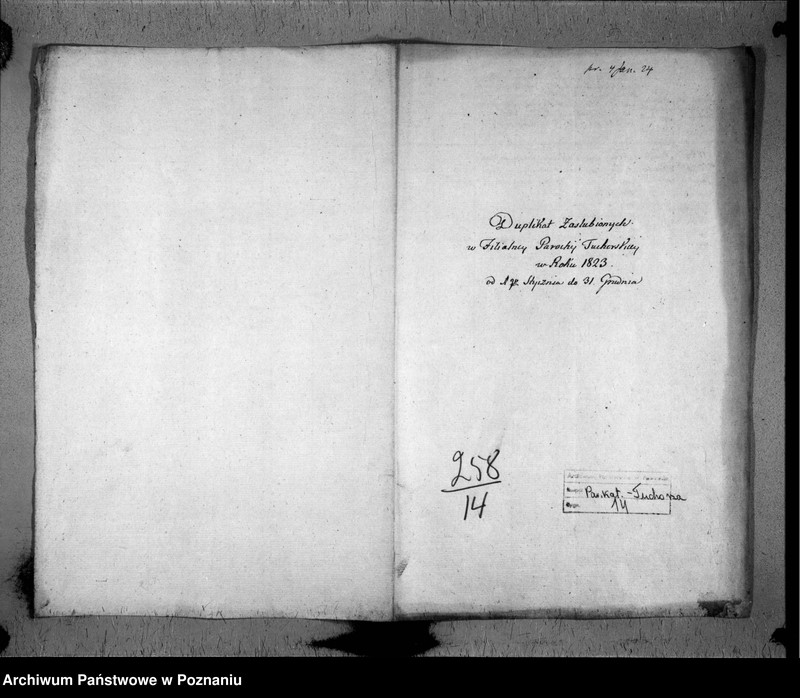 pr. 7 Jan. 24
Duplikat Zaslubionych
w Filialney Parochij Tuchorskiey
w Roku 1823.
od 1go Stycznia do 31. Grudnia
258
14
Par. kat. - Tuchorza
14
Archiwum Państwowe w Poznaniu